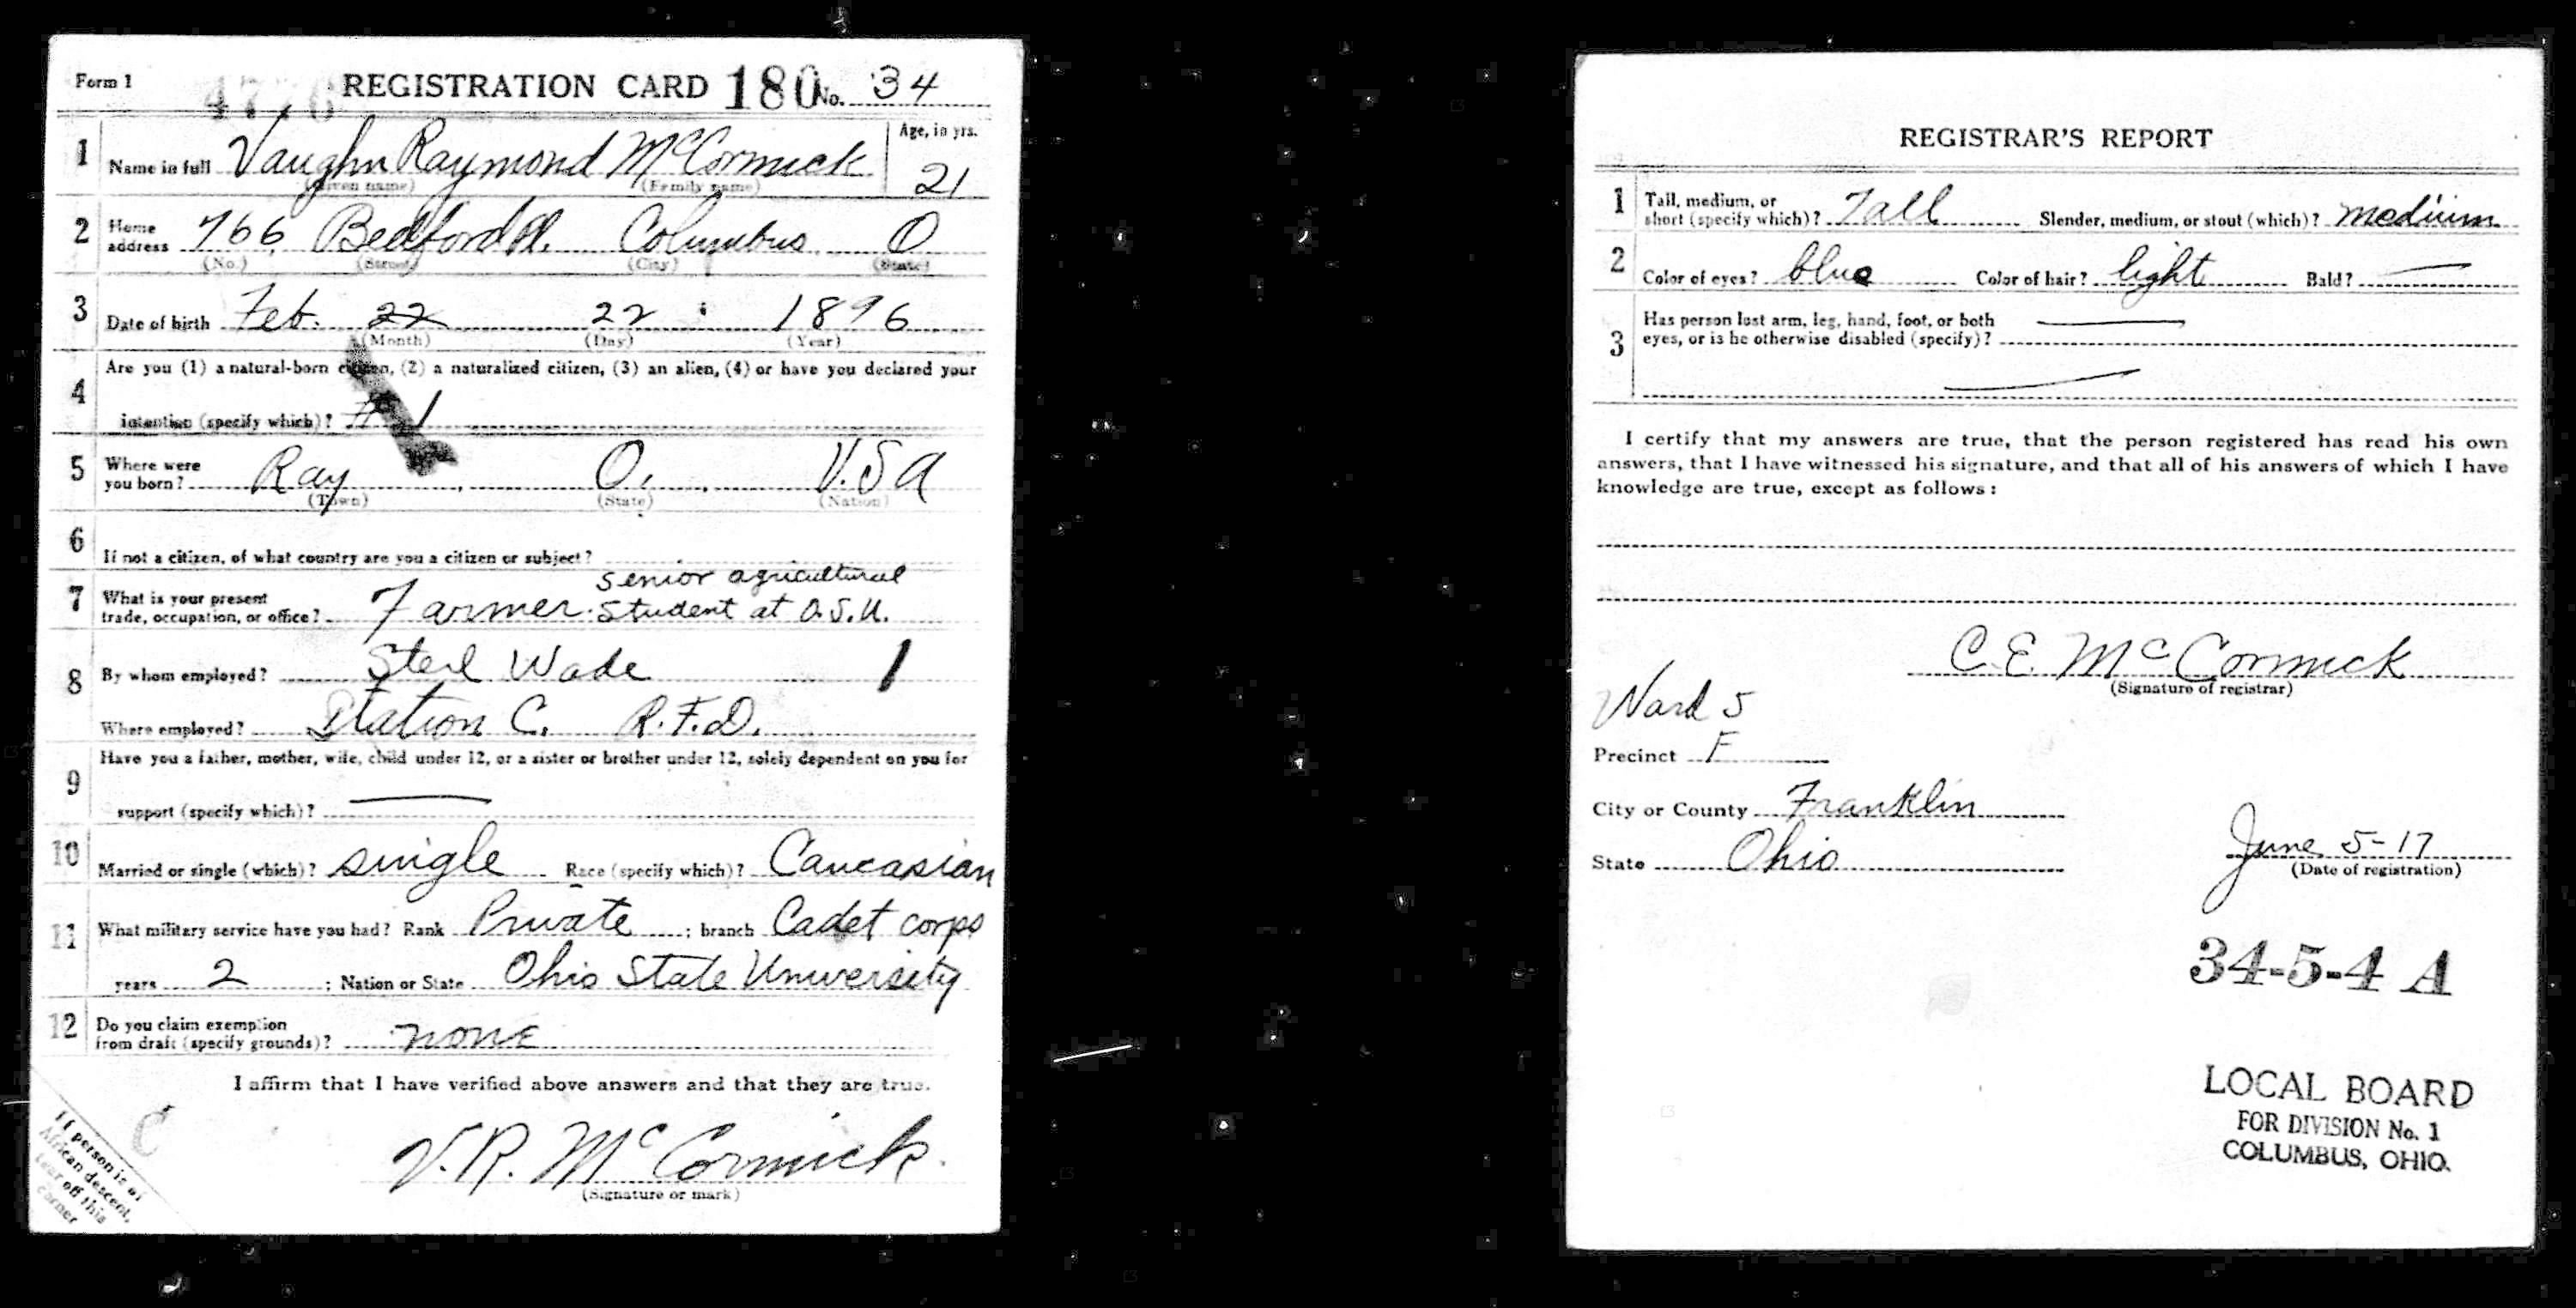 Form 1 REGISTRATION CARD 180 No. 34
1 Name in full Vaughn Raymond McCormick Age, in yrs. 21
(Given name) (Family name)
2 Home address 766 Bedford Pl. Columbus O
(No.) (Street) (City) (State)
3 Date of birth Feb. 22 22 1896
(Month) (Day) (Year)
4 Are you (1) a natural-born citizen, (2) a naturalized citizen, (3) an alien, (4) or have you declared your
intention (specify which)? # 1
5 Where were you born? Ray O. U.S.A
(Town) (State) (Nation)
6 If not a citizen, of what country are you a citizen or subject?
7 What is your present trade, occupation, or office? Farmer. senior agricultural
student at O.S.U.
8 By whom employed? Stere Wade 1
Where employed? Station C. R.F.D.
9 Have you a father, mother, wife, child under 12, or a sister or brother under 12, solely dependent on you for
support (specify which)? —
10 Married or single (which)? single Race (specify which)? Caucasian
11 What military service have you had? Rank Private ; branch Cadet corps
years 2 ; Nation or State Ohio State University
12 Do you claim exemption
from draft (specify grounds)? none
I affirm that I have verified above answers and that they are true.
C
V.R. McCormick.
(Signature or mark)
If person is of
African descent,
tear off this
corner
REGISTRAR'S REPORT
1 Tall, medium, or
short (specify which)? Tall Slender, medium, or stout (which)? medium
2 Color of eyes? blue Color of hair? light Bald? —
3 Has person lost arm, leg, hand, foot, or both —
eyes, or is he otherwise disabled (specify)?
—
I certify that my answers are true, that the person registered has read his own
answers, that I have witnessed his signature, and that all of his answers of which I have
knowledge are true, except as follows:
C.E. McCormick
(Signature of registrar)
Ward 5
Precinct F
City or County Franklin
State Ohio
June 5-17
(Date of registration)
34-5-4 A
LOCAL BOARD
FOR DIVISION No. 1
COLUMBUS, OHIO.